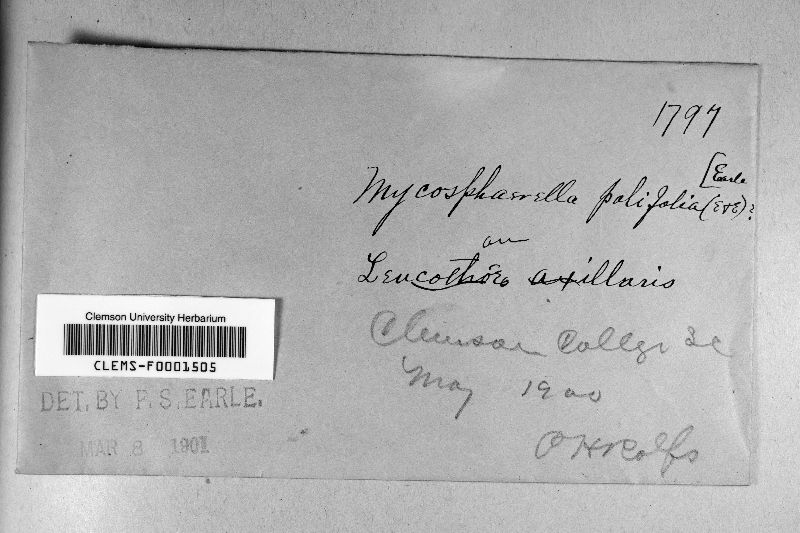 1797
Mycosphaerella polifolia (E&E)? [Earle
on
Leucothoe axillaris
Clemson College SC
May 1900
P H Rolfs
Clemson University Herbarium
CLEMS-F0001505
DET. BY F. S. EARLE.
MAR 8 1901